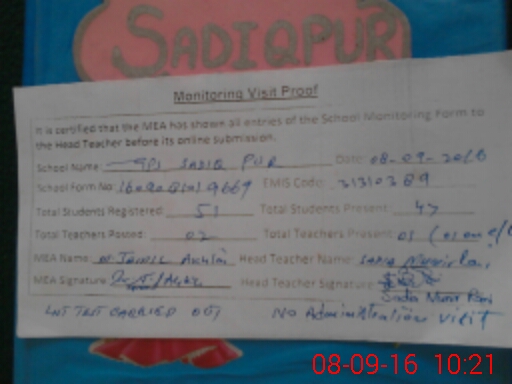 SADIQPUR
Monitoring Visit Proof
It is certified that the MEA has shown all entries of the School Monitoring Form to
the Head Teacher before its online submission.
School Name: GPS SADIQ PUR Date: 08-09-2016
School Form No. EMIS Code: 31310389
Total Students Registered: 51 Total Students Present: 47
Total Teachers Posted: 02 Total Teachers Present:
MEA Name: Head Teacher Name: Sadia
MEA Signature: Head Teacher Signature:
Sadia
LNT TEST CARRIED OUT No Administration visit
08-09-16 10:21